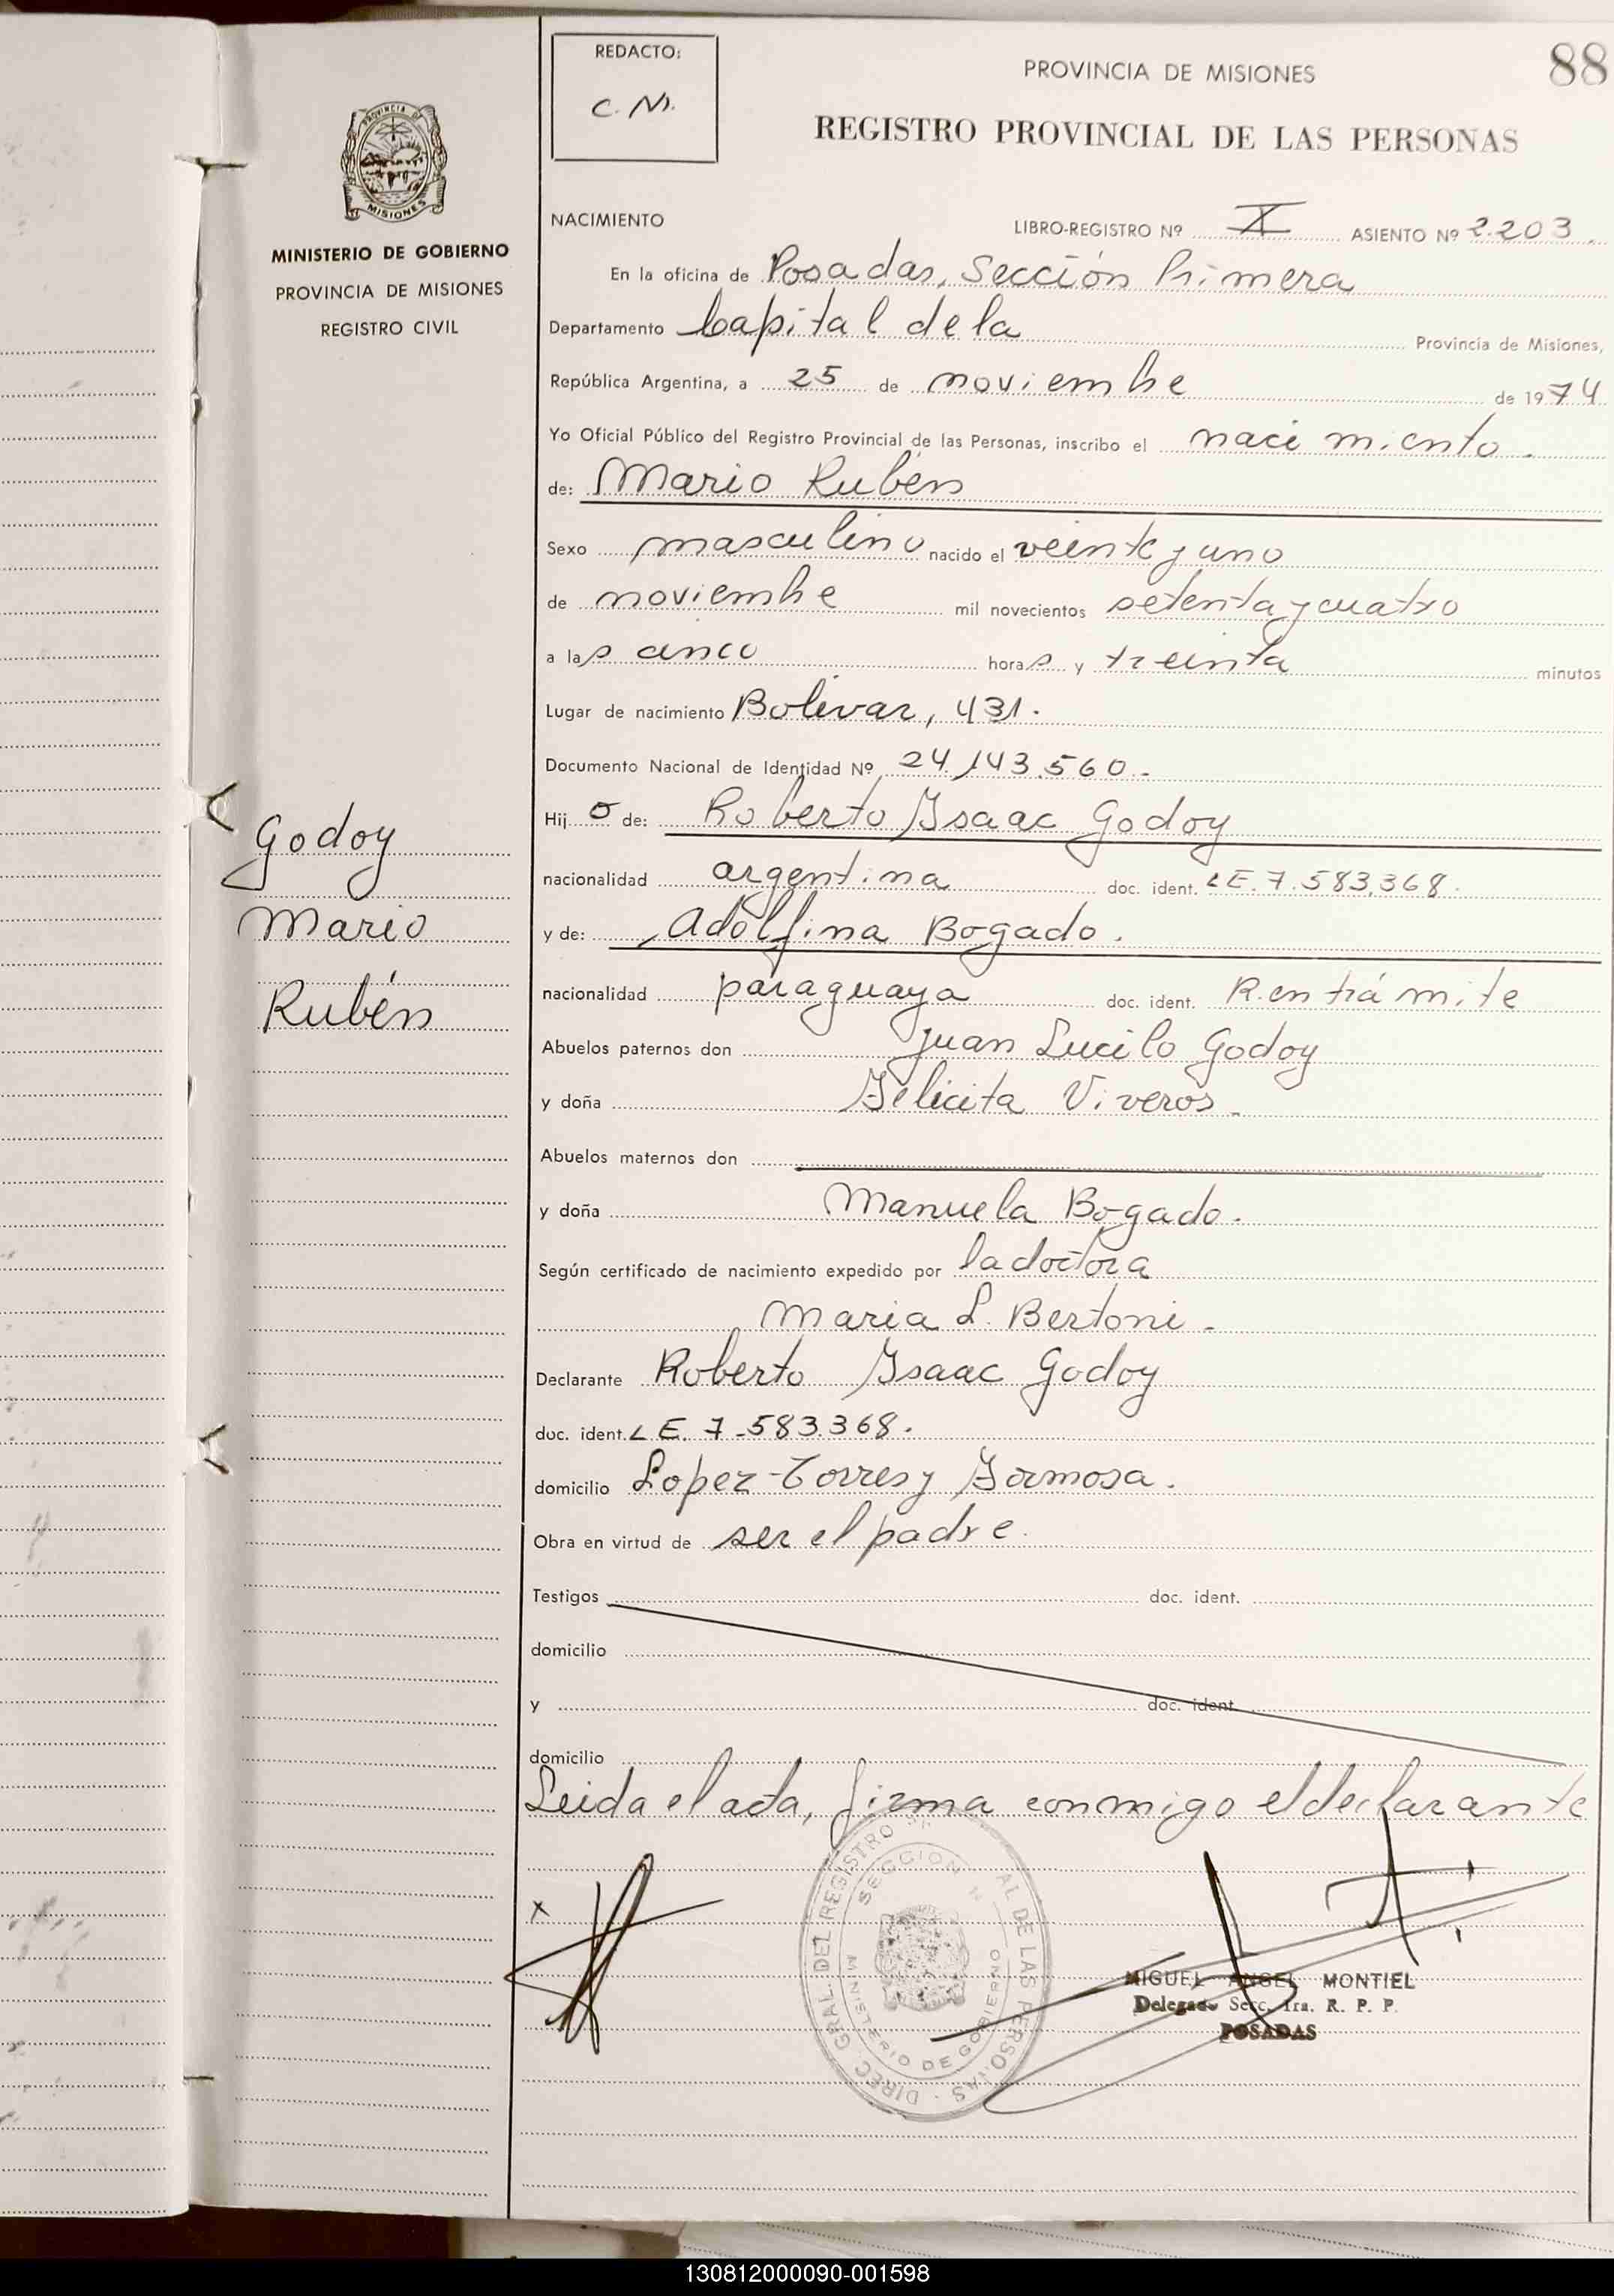 REDACTO:
C. M.
PROVINCIA DE MISIONES
88
REGISTRO PROVINCIAL DE LAS PERSONAS
PROVINCIA DE
MISIONES
MINISTERIO DE GOBIERNO
PROVINCIA DE MISIONES
REGISTRO CIVIL
NACIMIENTO LIBRO-REGISTRO Nº X ASIENTO Nº 2.203.
En la oficina de Posadas, Sección Primera
Departamento Capital de la Provincia de Misiones,
República Argentina, a 25 de noviembre de 1974
Yo Oficial Público del Registro Provincial de las Personas, inscribo el nacimiento.
de: Mario Rubén
Sexo masculino nacido el veinte y uno
de noviembre mil novecientos setenta y cuatro
a las cinco horas y treinta minutos
Lugar de nacimiento Bolívar, 431.
Documento Nacional de Identidad Nº 24.143.560.-
Hijo de: Roberto Isaac Godoy
nacionalidad argentina doc. ident. LE. 7.583.368.
y de: Adolfina Bogado.
nacionalidad paraguaya doc. ident. R. en trámite
Abuelos paternos don Juan Lucilo Godoy
y doña Felicita Viveros.
Abuelos maternos don
y doña Manuela Bogado.
Según certificado de nacimiento expedido por la doctora
Maria L. Bertoni.
Declarante Roberto Isaac Godoy
doc. ident. LE. 7.583.368.
domicilio Lopez Torres y Formosa.
Obra en virtud de ser el padre.
Testigos doc. ident.
domicilio
y doc. ident.
domicilio
Leida el acta, firma conmigo el declarante
Godoy
Mario
Rubén
x
DIREC. GRAL. DEL REGISTRO AL DE LAS PERSONAS
SECCION
MINISTERIO DE GOBIERNO
MIGUEL ANGEL MONTIEL
Delegado Secc. 1ra. R. P. P.
POSADAS
130812000090-001598